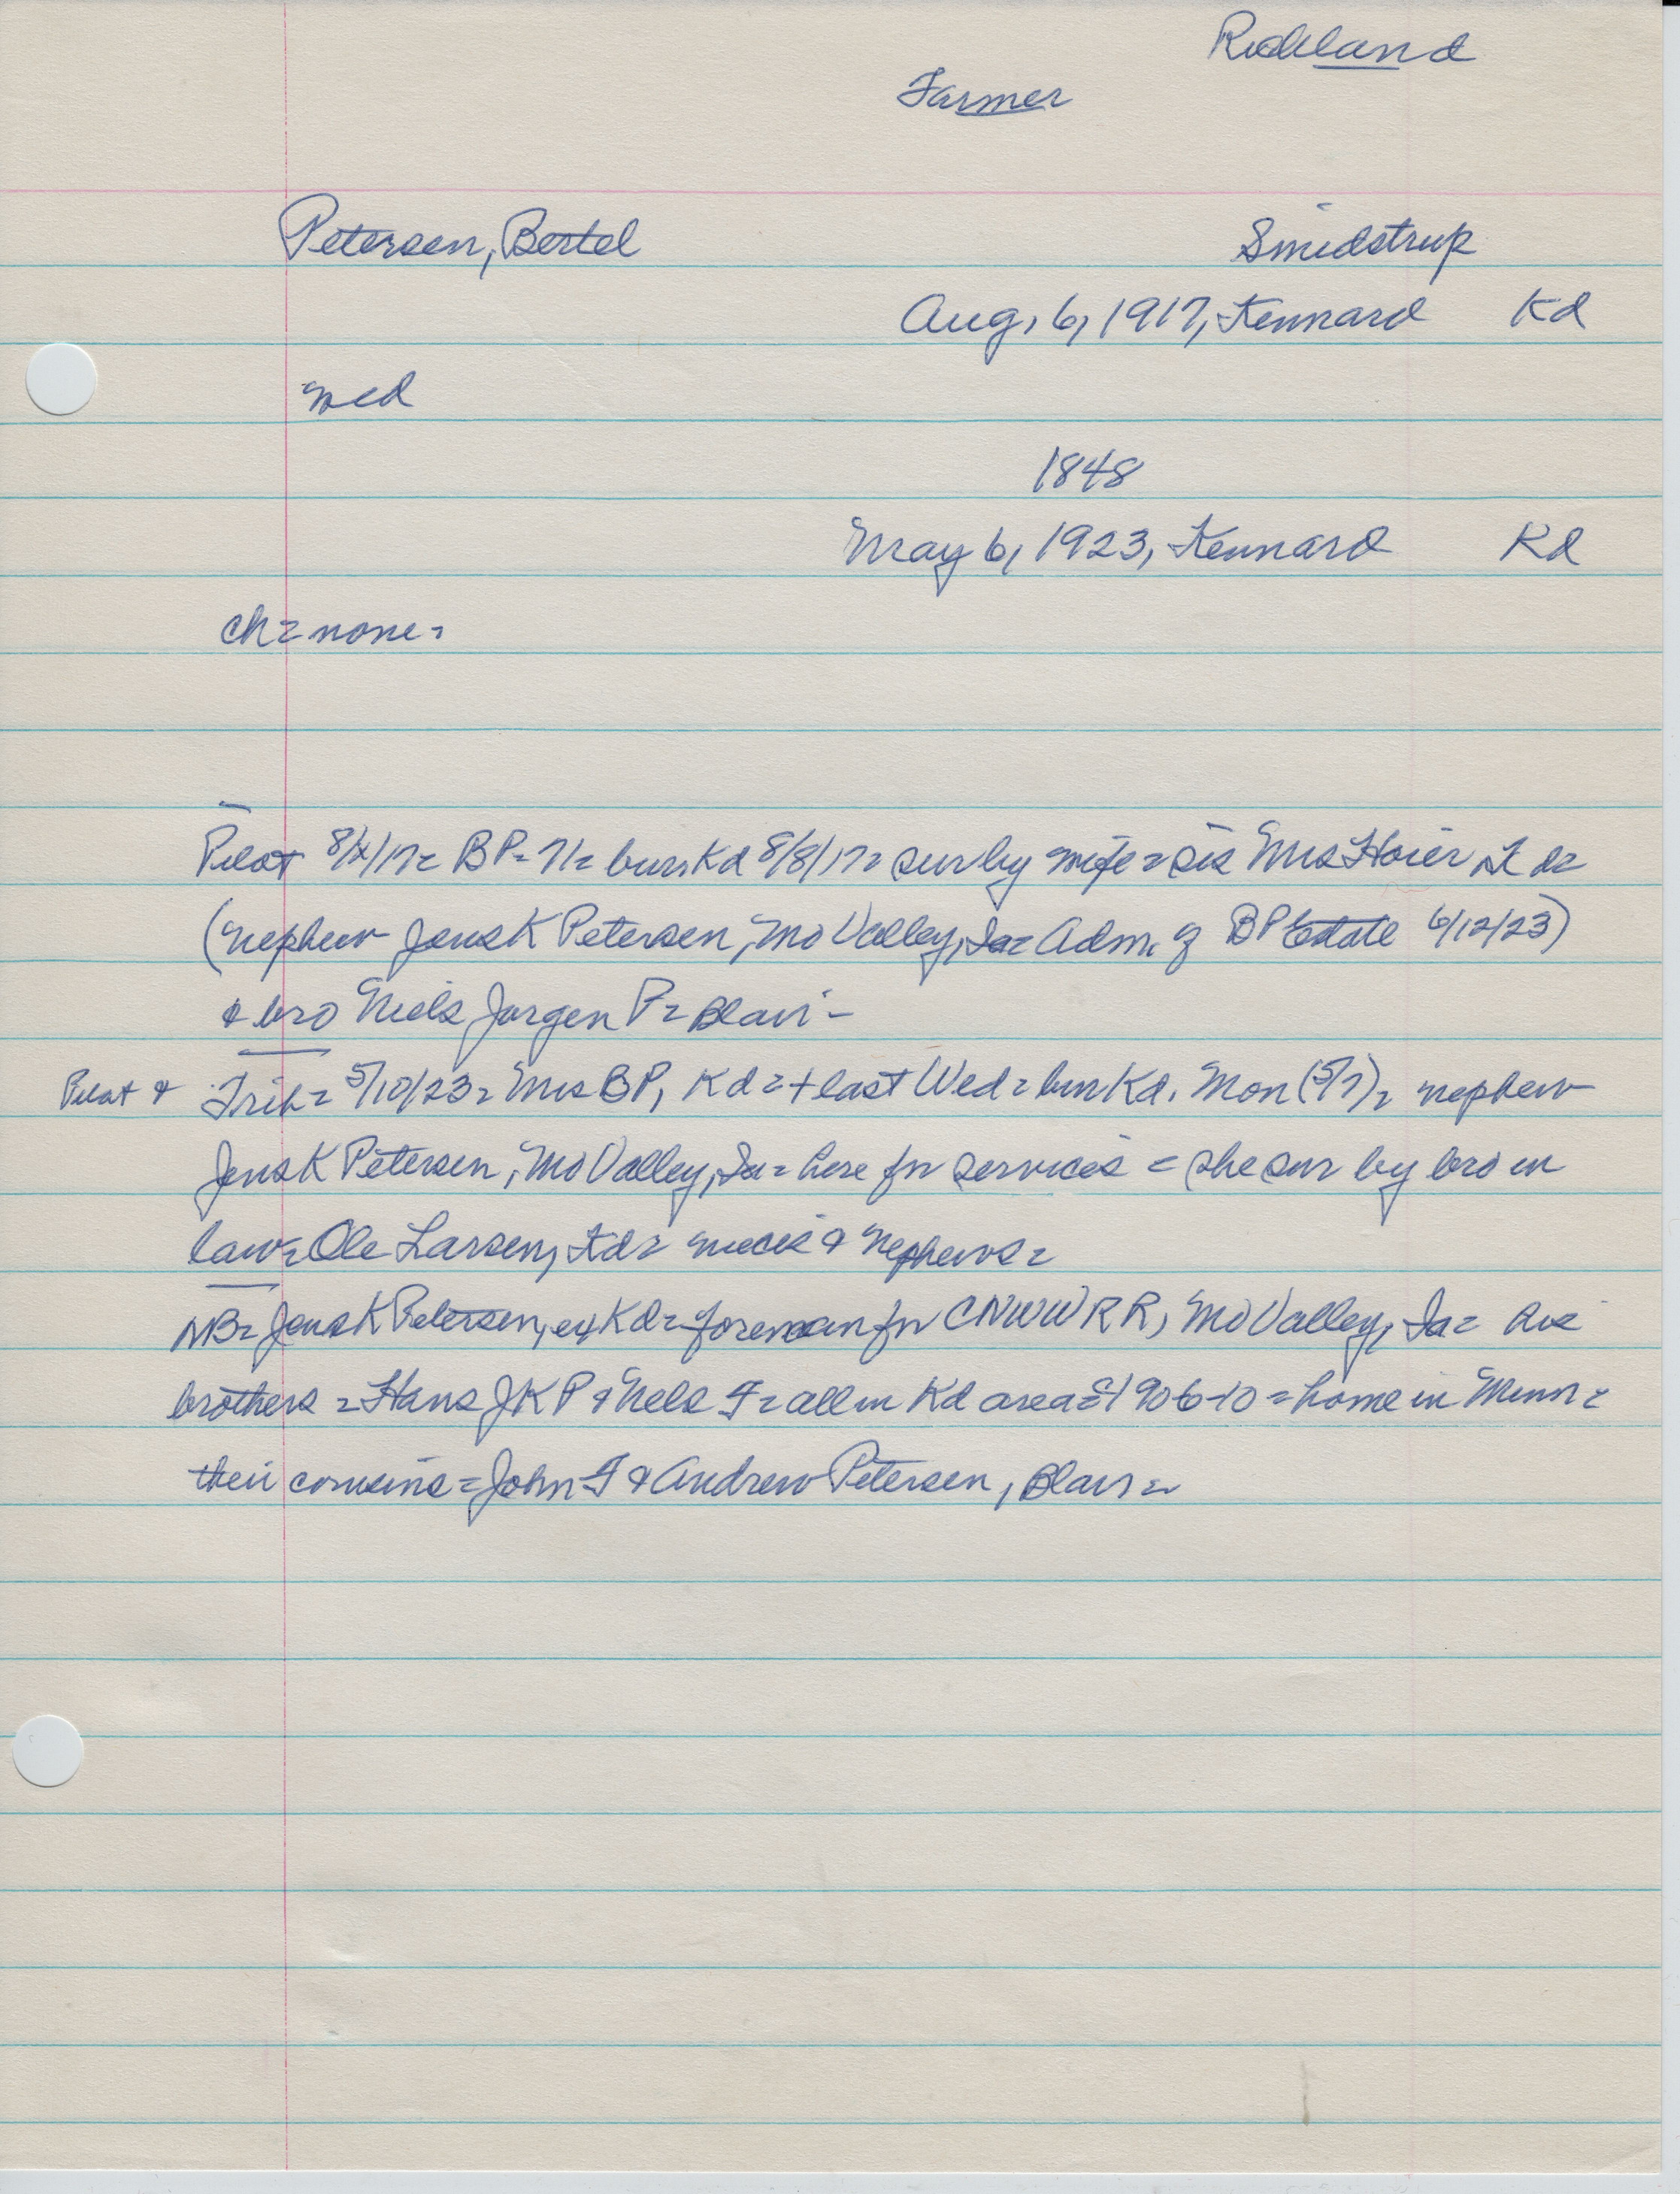 Richland
Farmer
Petersen, Bertel Smidstrup
Aug, 6, 1917, Kennard Kd
wed
1848
May 6, 1923, Kennard Kd
ch = none =
Pilot 8/8/17 = BP = 71 = bur Kd 8/8/17 = sur by wife = sis Mrs Hoier Kd =
(nephew Jens K Petersen, Mo Valley, Ia = Adm. of BP Estate 6/12/23)
& bro Niels Jorgen P = Blair -
Pilot & Trib = 5/10/23 = Mrs BP, Kd = + last Wed = bur Kd. Mon (5/7) = nephew
Jens K Petersen, Mo Valley, Ia = here for services = she sur by bro in
law = Ole Larsen, Kd = nieces & nephews =
NB = Jens K Petersen, ex Kd = foreman for CNWW RR, Mo Valley, Ia = his
brothers = Hans JKP & Nels I = all in Kd area = 1906-10 = home in Minn =
their cousins = John I & Andrew Petersen, Blair =